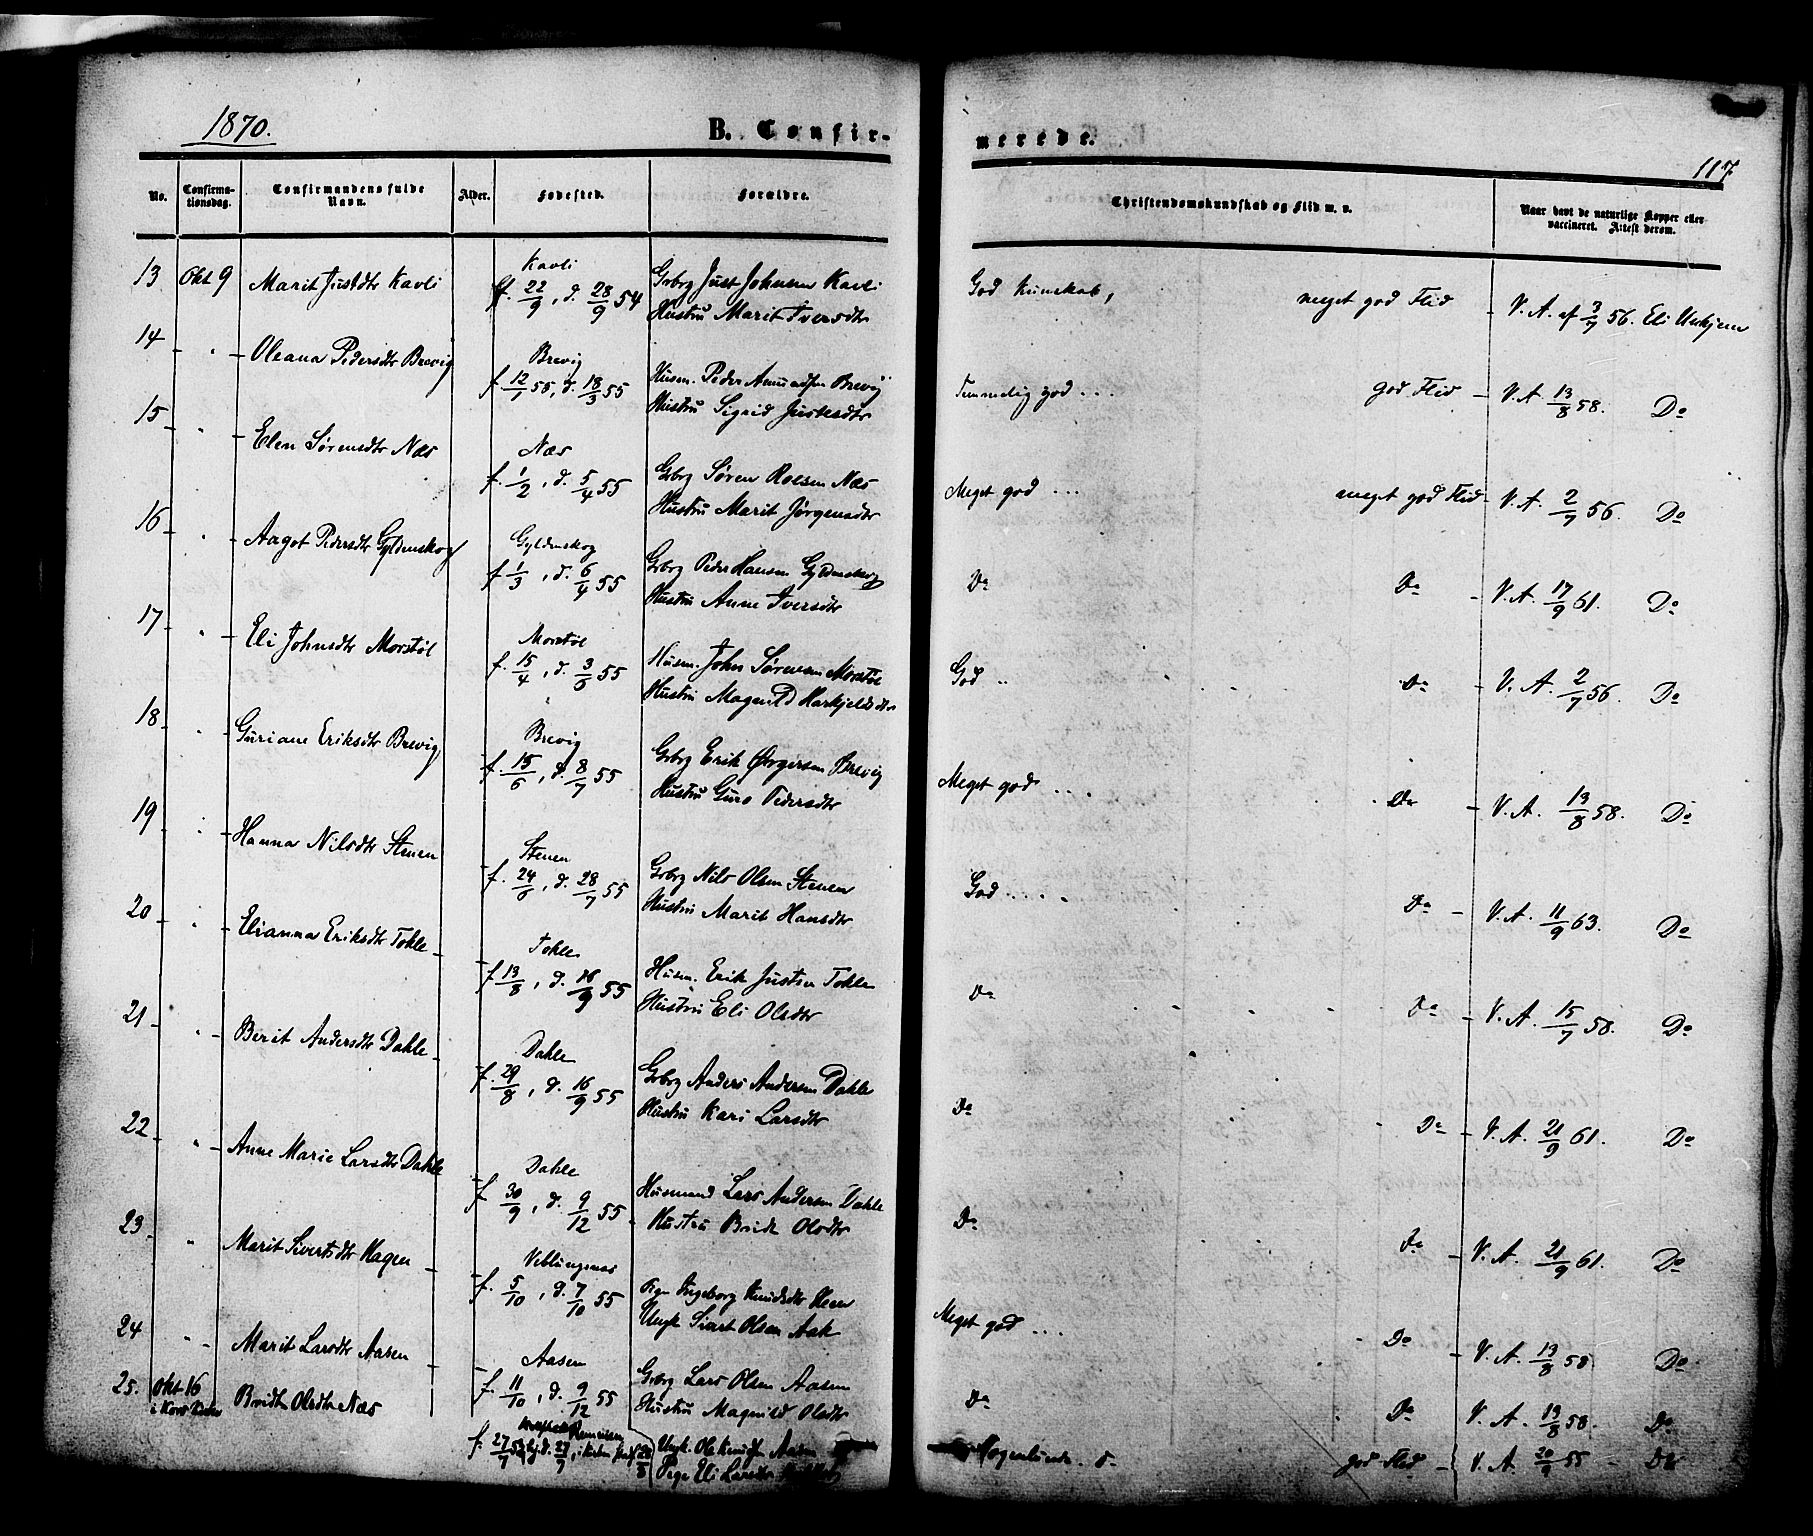 1870.
B. Confir-
merede.
117
No.
Confirma-
tionsdag.
Confirmandens fulde
Navn.
Alder.
Fødested.
Forældre.
Christendomskundskab og Flid m. v.
Naar havt de naturlige Kopper eller
vaccineret. Attest derom.
13 Okt 9 Marit Justdtr Kavli
Kavli
f. 22/9, d. 28/9 54
Grbrg Just Johnsen Kavli
Hustru Marit Iversdtr
God Kundskab, meget god Flid - V. A. af 2/7 56. Eli Unhjem
14 " Oleana Pedersdtr Brevig
Brevig
f. 12/1 55, d. 18/3 55
Husm. Peder Amundsen Brevig
Hustru Sigrid Justsdtr
Temmelig god ... god Flid - V. A 13/8 58. Do
15 " Elen Sørensdtr Næs
Næs
f. 1/2, d. 5/4 55
Grbrg Søren Roesen Næs
Hustru Marit Jørgensdtr
Meget god ... meget god Flid - V. A. 2/7 56. Do
16 " Aagot Pedersdtr Gyldenskog
Gyldenskog
f. 1/3, d. 6/4 55
Grbrg Peder Hansen Gyldenskog
Hustru Anne Iversdtr
Do Do - V. A. 17/9 61. Do
17 " Eli Johnsdtr Morstøl
Morstøl
f. 15/4, d. 3/5 55
Husm. John Sørensen Morstøl
Hustru Magnild Harkjeldsdtr
God .. Do - V. A. 2/7 56. Do
18 " Guriane Eriksdtr Brevig
Brevig
f. 15/6, d. 8/7 55
Grbrg Erik Ørgersen Brevig
Hustru Guro Pedersdtr
Meget god .... Do - V. A. 13/8 58. Do
19 " Hanna Nilsdtr Stenen
Stenen
f. 24/6, d. 28/7 55
Grbrg Nils Olsen Stenen
Hustru Marit Hansdtr
God ..... Do - V. A. 11/9 63. Do
20 " Elianna Eriksdtr Tokle
Tokle
f. 13/8, d. 16/9 55
Husm. Erik Justsen Tokle
Hustru Eli Olsdtr
Do Do - V. A. 15/7 58. Do
21 " Berit Andersdtr Dahle
Dahle
f. 29/8, d. 16/9 55
Grbrg Anders Andersen Dahle
Hustru Kari Larsdtr
Do Do - V. A. 21/9 61. Do
22 " Anne Marie Larsdtr Dahle
Dahle
f. 30/9, d. 9/12 55
Husmand Lars Andersen Dahle
Hustru Bridt Olsdtr
Do Do - V. A. 21/9 61. Do
23 " Marit Sivertsdtr Hagen
Veblungsnæs
f. 5/10, d. 7/10 55
Pige Ingeborg Knudsdtr Heen
Ungk Sivert Olsen Aak
Meget god ... Do - V. A. 13/8 58 Do
24 " Marit Larsdtr Aasen
Aasen
f. 11/10, d. 9/12 55
Grbrg Lars Olsen Aasen
Hustru Magnild Olsdtr
Do Do - V. A. 13/8 58. Do
25. Okt 16
i Kors Kirke
Bridt Olsdtr Næs
f. 27/7 53, hj.d. 27/7, i Kirken
Ungk. Ole Knudsen Aasen
Pige Eli Larsdtr
Nogenlunde. god Flid - V. A. 20/9 55 - Do